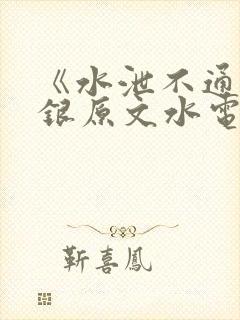 《水泄不通
銀原文水電
靳喜鳳